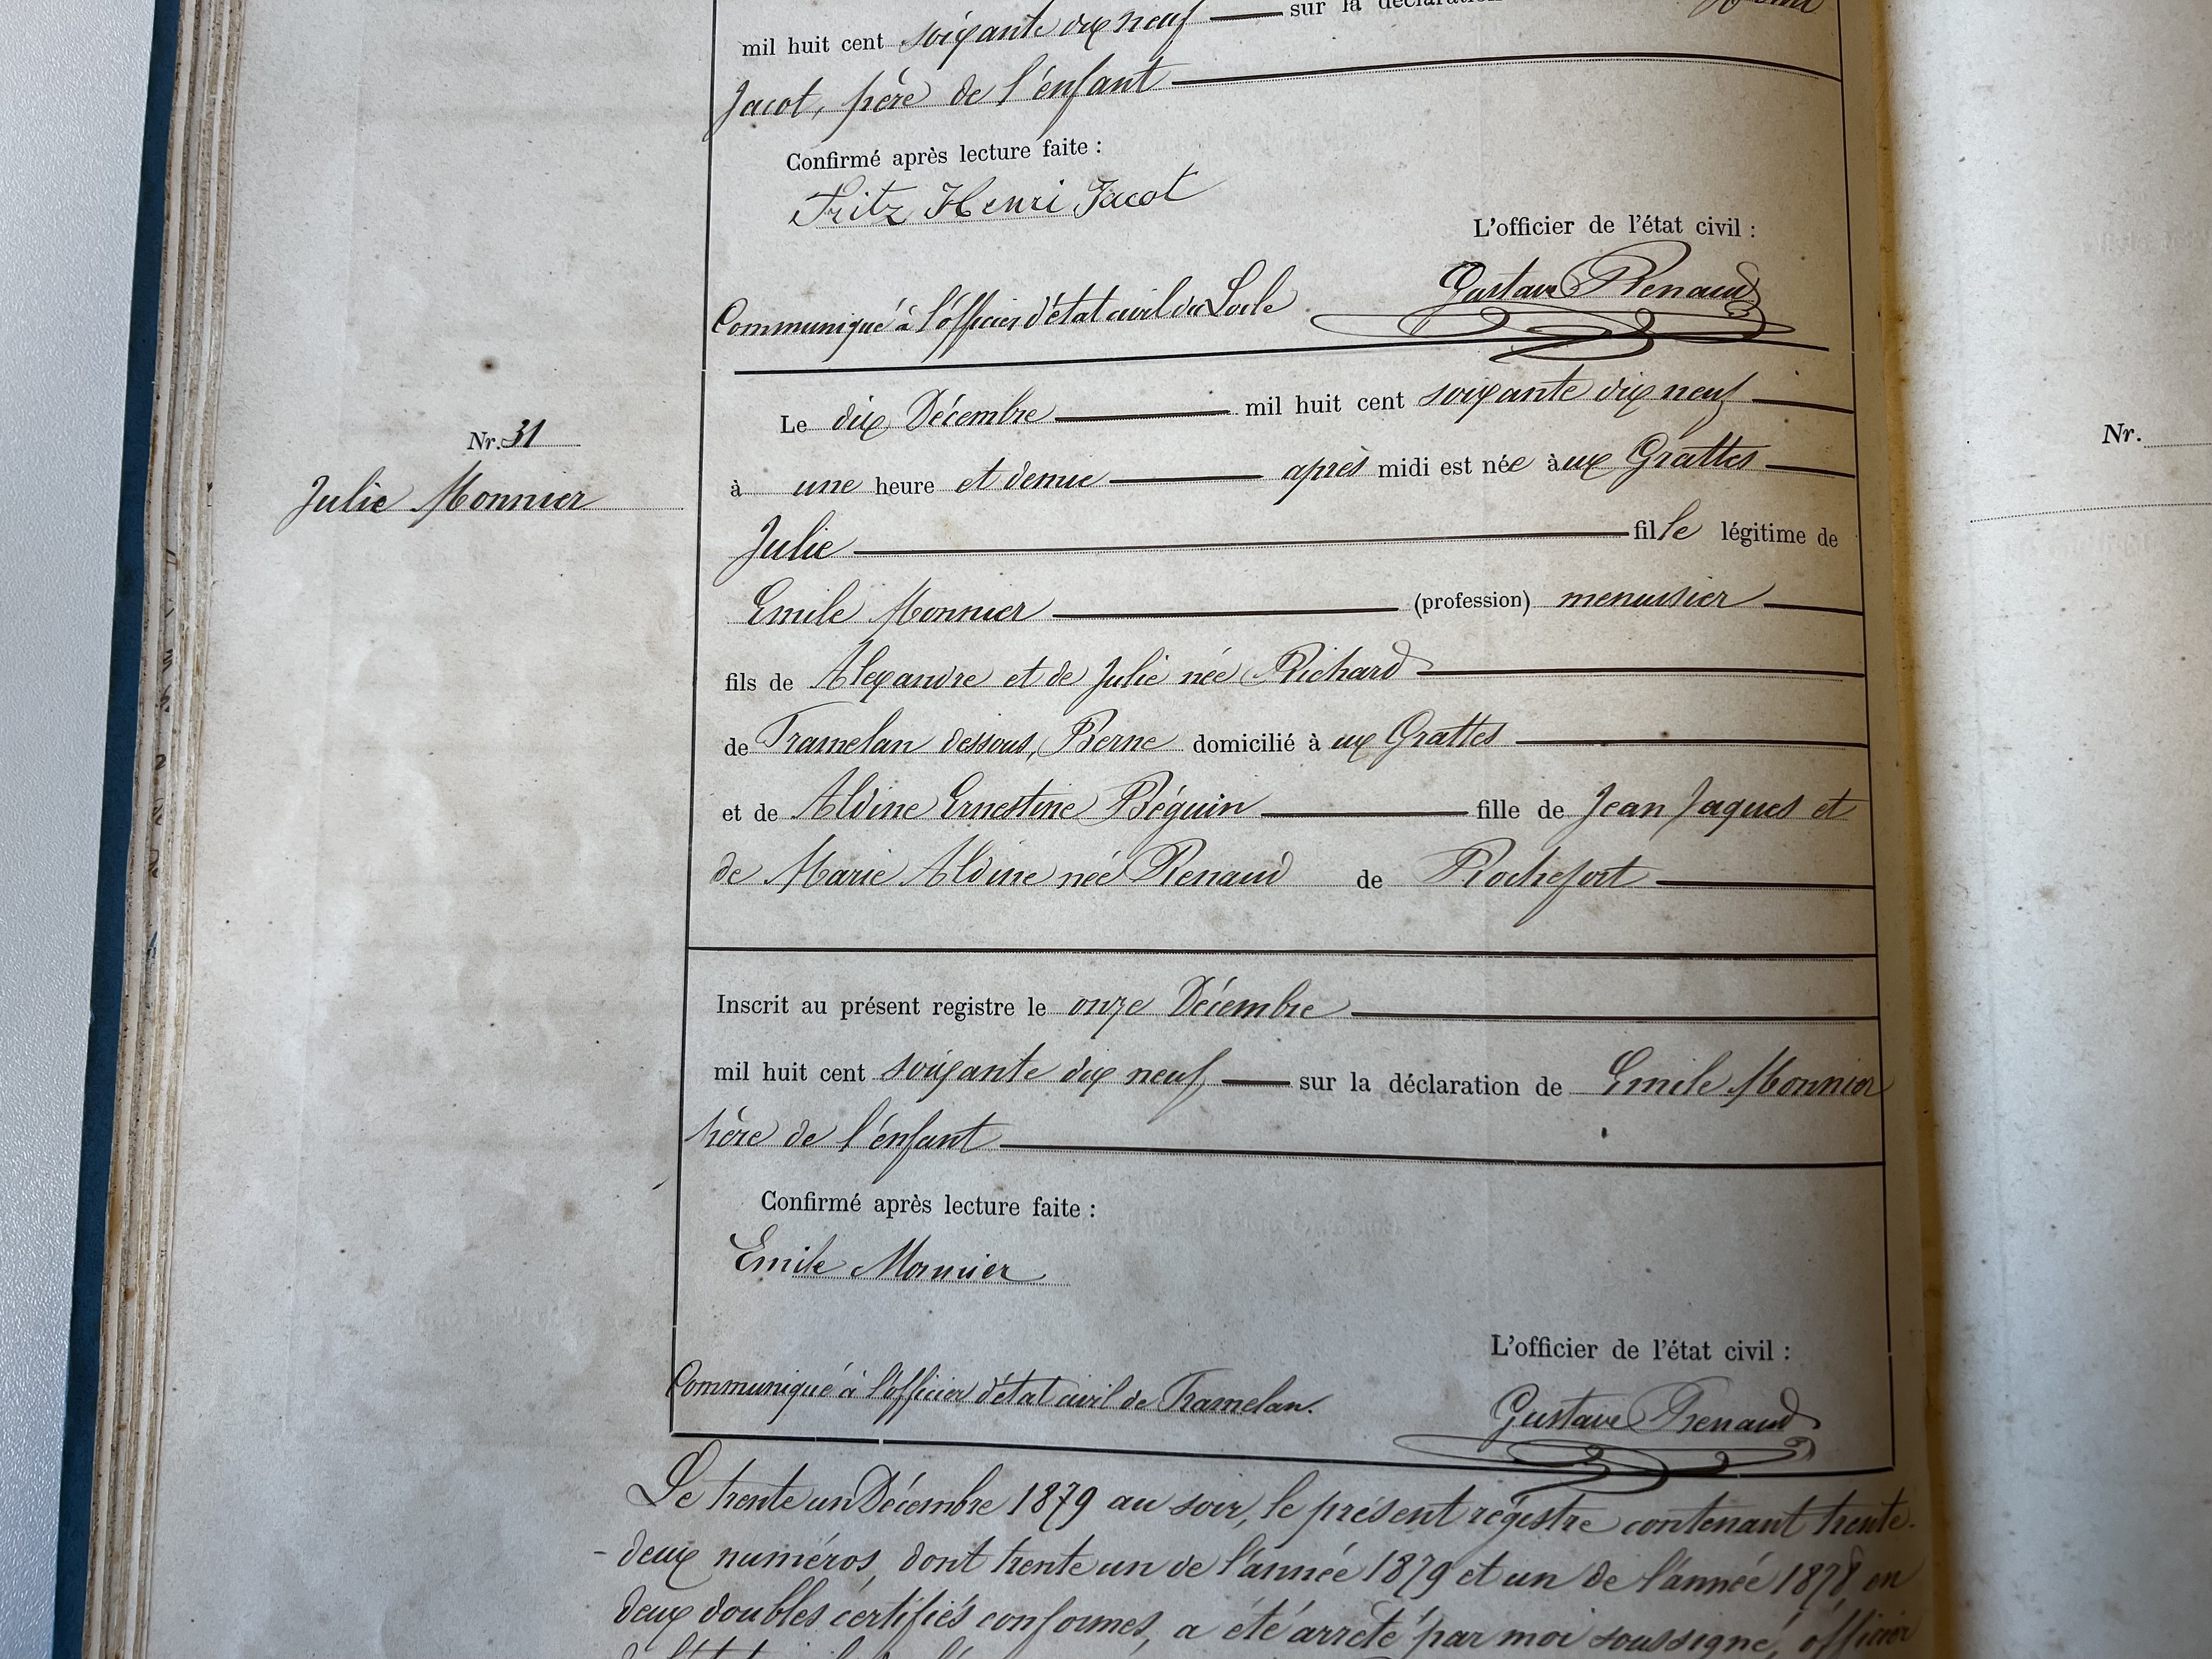 mil huit cent soixante dix neuf sur la déclaration
Jacot, père de l'enfant
Confirmé après lecture faite :
Fritz Henri Jacot
L'officier de l'état civil :
Communiqué à l'officier d'état civil du Locle.
Gustave Renaud
Nr. 31
Julie Monnier
Le dix Décembre mil huit cent soixante dix neuf
à une heure et demie après midi est née àux Grattes
Julie fille légitime de
Emile Monnier (profession) menuisier
fils de Alexandre et de Julie née Richard
de Tramelan dessous, Berne domicilié à ux Grattes
et de Aldine Ernestine Béguin fille de Jean Jaques et
de Marie Aldine née Renaud de Rochefort
Inscrit au présent registre le onze Décembre
mil huit cent soixante dix neuf sur la déclaration de Emile Monnier
père de l'enfant
Confirmé après lecture faite :
Emile Monnier
L'officier de l'état civil :
Communiqué à l'officier d'état civil de Tramelan.
Gustave Renaud
Le trente un Décembre 1879 au soir, le présent régistre contenant trente-
-deux numéros, dont trente un de l'année 1879 et un de l'année 1878, en
deux doubles certifiés conformes, a été arrêté par moi soussigné, officier
Nr.